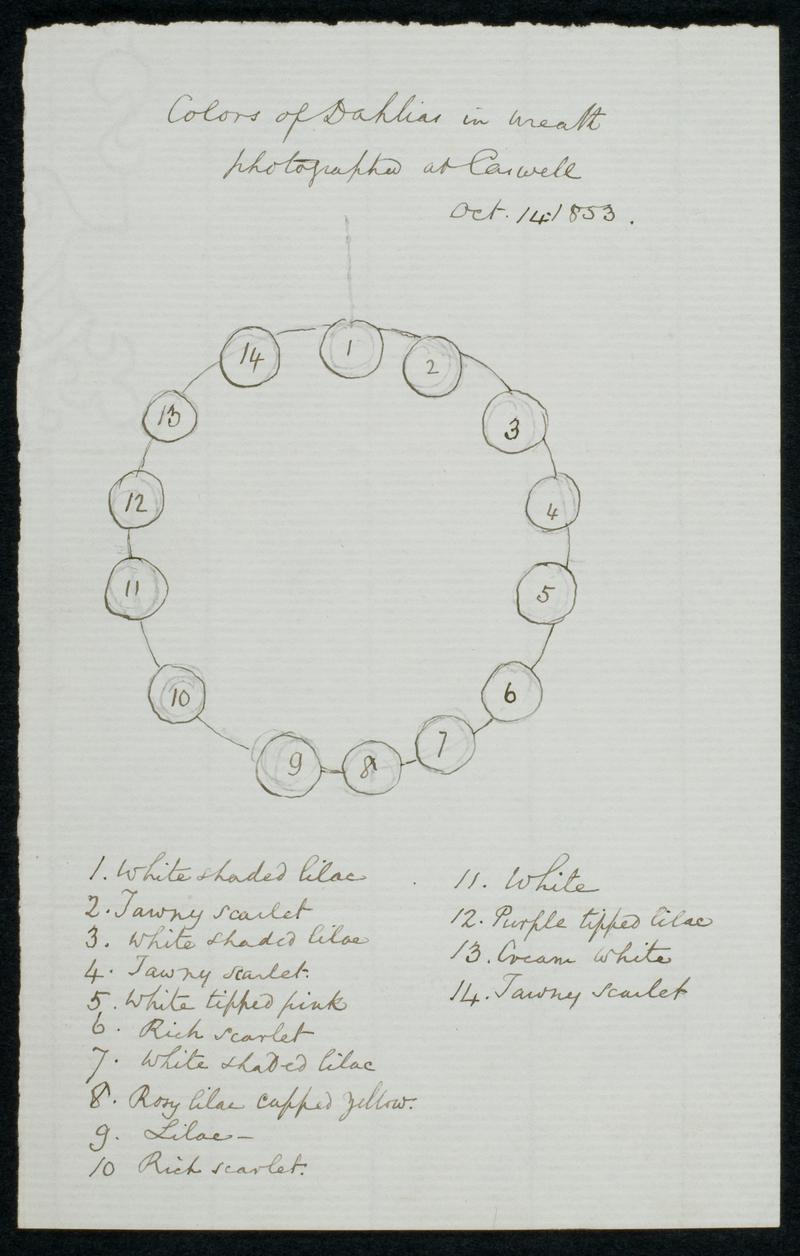 Colors of Dahlias in wreath
photographed at Caswell
Oct. 14. 1853.
1
2
3
4
5
6
7
8
9
10
11
12
13
14
1. White shaded lilac
2. Tawny scarlet
3. White shaded lilac
4. Tawny scarlet.
5. White tipped pink
6. Rich scarlet
7. White shaded lilac
8. Rosy lilac cupped yellow.
9. Lilac –
10 Rich scarlet.
11. White
12. Purple tipped lilac
13. Cream white
14. Tawny scarlet